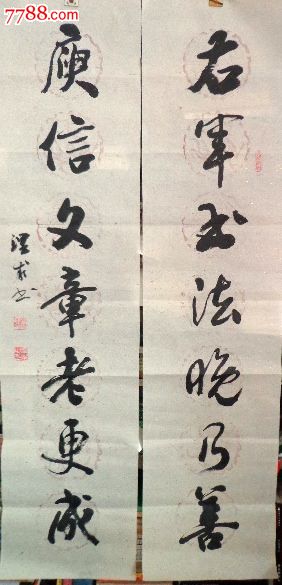 7788.com
右軍书法晚乃善
庾信文章老更成